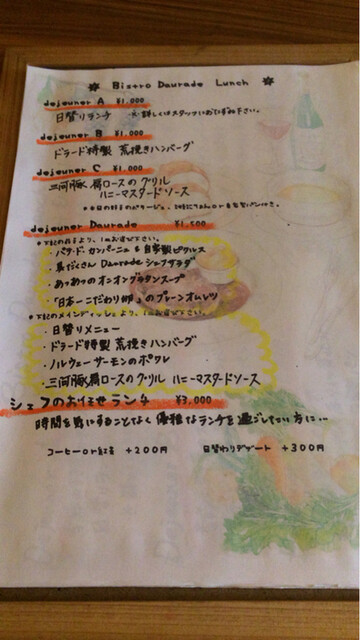 ＊ Bistro Daurade Lunch ＊
dejeuner A ¥1,000
日替りランチ ※詳しくはスタッフにおたずね下さい。
dejeuner B ¥1,000
ドラード特製 荒挽きハンバーグ
dejeuner C ¥1,000
三河豚肩ロースのグリル
ハニーマスタードソース
dejeuner Daurade ¥1,500
＊下記の前菜より、1品お選び下さい。
・パテ・ド・カンパーニュ & 自家製ピクルス
・具だくさん Daurade シェフサラダ
・あつあつのオニオングラタンスープ
・「日本一こだわり卵」のプレーンオムレツ
＊下記のメインディッシュより、1品お選び下さい。
・日替りメニュー
・ドラード特製 荒挽きハンバーグ
・ノルウェーサーモンのポワレ
・三河豚肩ロースのグリル ハニーマスタードソース
シェフのお任せランチ ¥3,000
時間を気にすることなく 優雅なランチを過ごしたい方に…
コーヒーor紅茶 +200円 日替わりデザート +300円